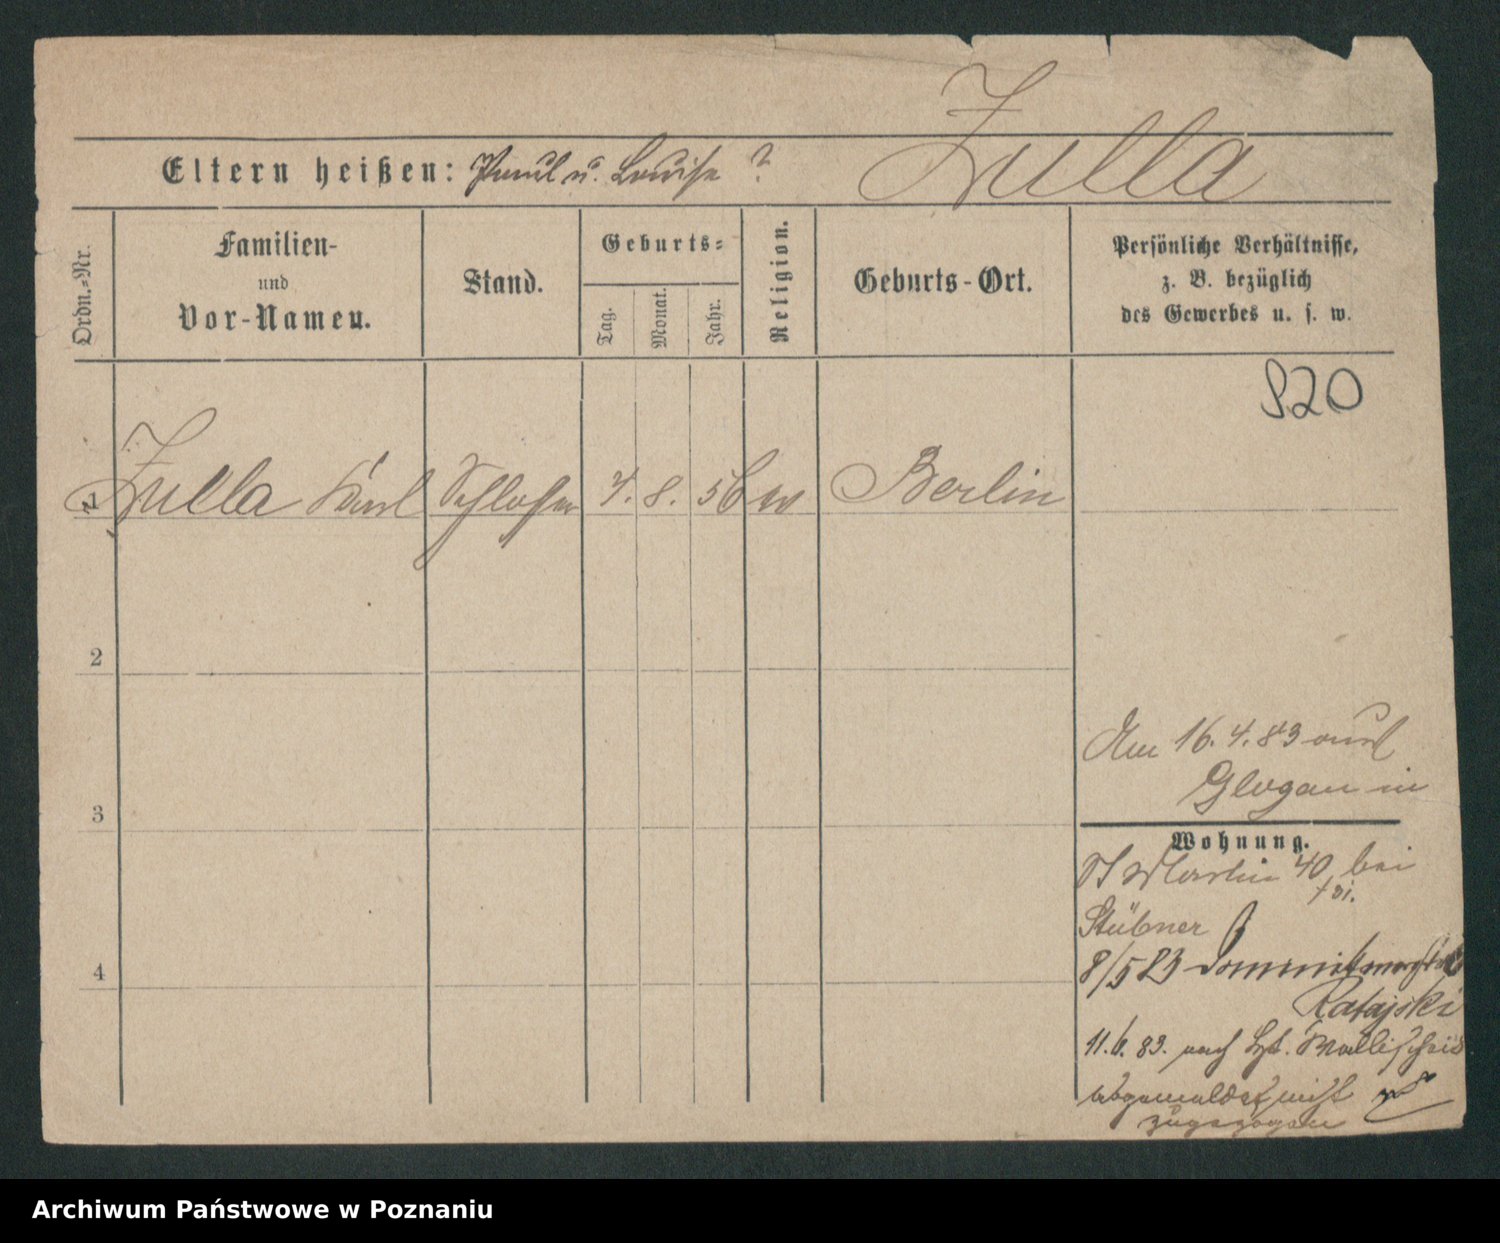 Zulla
Eltern heißen: Paul u. Louise ?
Ordn.=Nr.
Familien-
und
Vor-Namen.
Stand.
Geburts=
Tag.
Monat.
Jahr.
Religion.
Geburts-Ort.
Persönliche Verhältnisse,
z. B. bezüglich
des Gewerbes u. s. w.
920
1 Zulla Karl Schlosser 4. 8. 56 Berlin
2
3
4
Am 16. 4. 83 aus
Glogau in
Wohnung.
St Martin 40, bei
Stübner
8/5 83
Ratajski
11. 6. 83. nach Wallischei
abgemeldet nicht
zugezogen
Archiwum Państwowe w Poznaniu